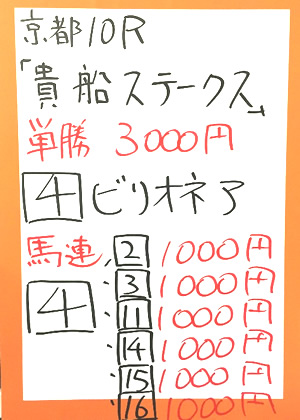 京都10R
「貴船ステークス」
単勝 3000円
4 ビリオネア
馬連 2 1000円
4 3 1000円
11 1000円
14 1000円
15 1000円
16 1000円